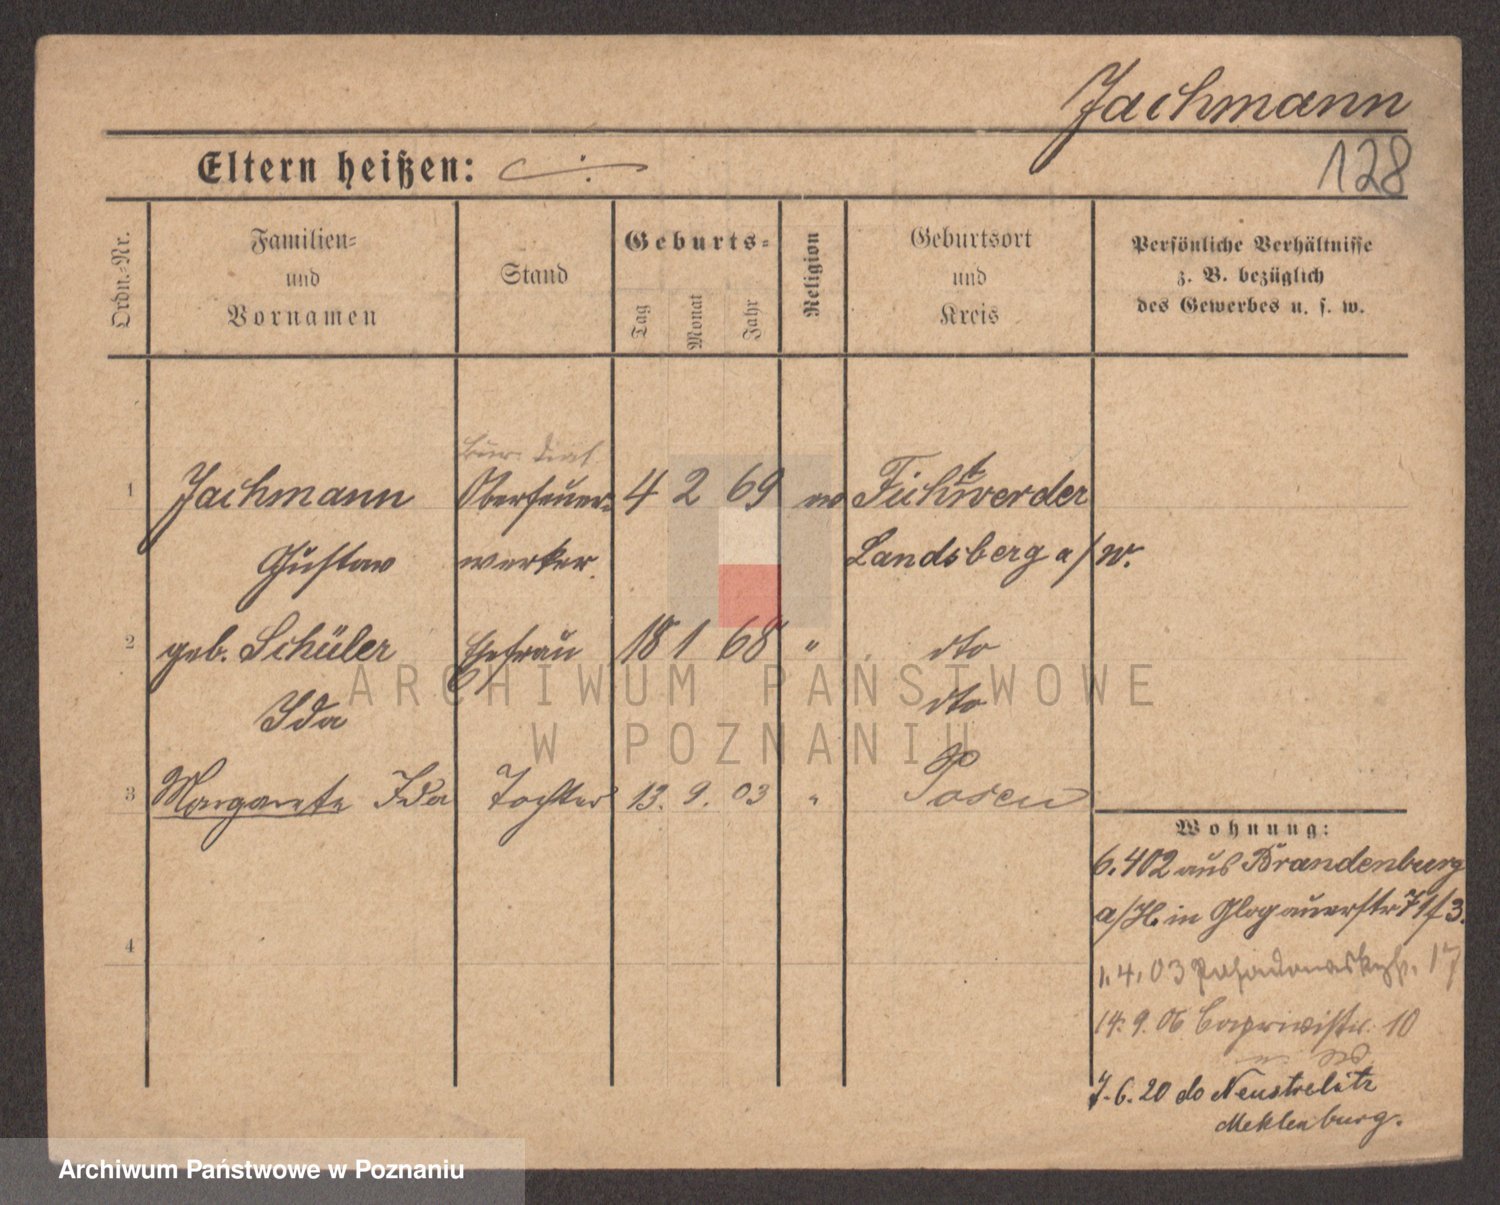 Jachmann
Eltern heißen: ·/.
128
Ordn.-Nr.
Familien- und Vornamen
Stand
Geburts-
Tag
Monat
Jahr
Religion
Geburtsort und Kreis
Persönliche Verhältnisse z. B. bezüglich des Gewerbes u. s. w.
1 Jachmann Oberfeuer- 4 2 69 ev Fichtwerder
Gustav werker. Landsberg a/W.
2 geb. Schüler Ehefrau 18 1 68 " dto
Ida dto
3 Margarete Ida Tochter 13. 9. 03 " Posen
4
Wohnung:
6.402 aus Brandenburg
a/H. in Glogauerstr 71/3.
1.4.03 17
14.9.06 Caprivistr. 10
7.6.20 do Neustrelitz
Meklenburg.
ARCHIWUM PAŃSTWOWE
W POZNANIU
Archiwum Państwowe w Poznaniu